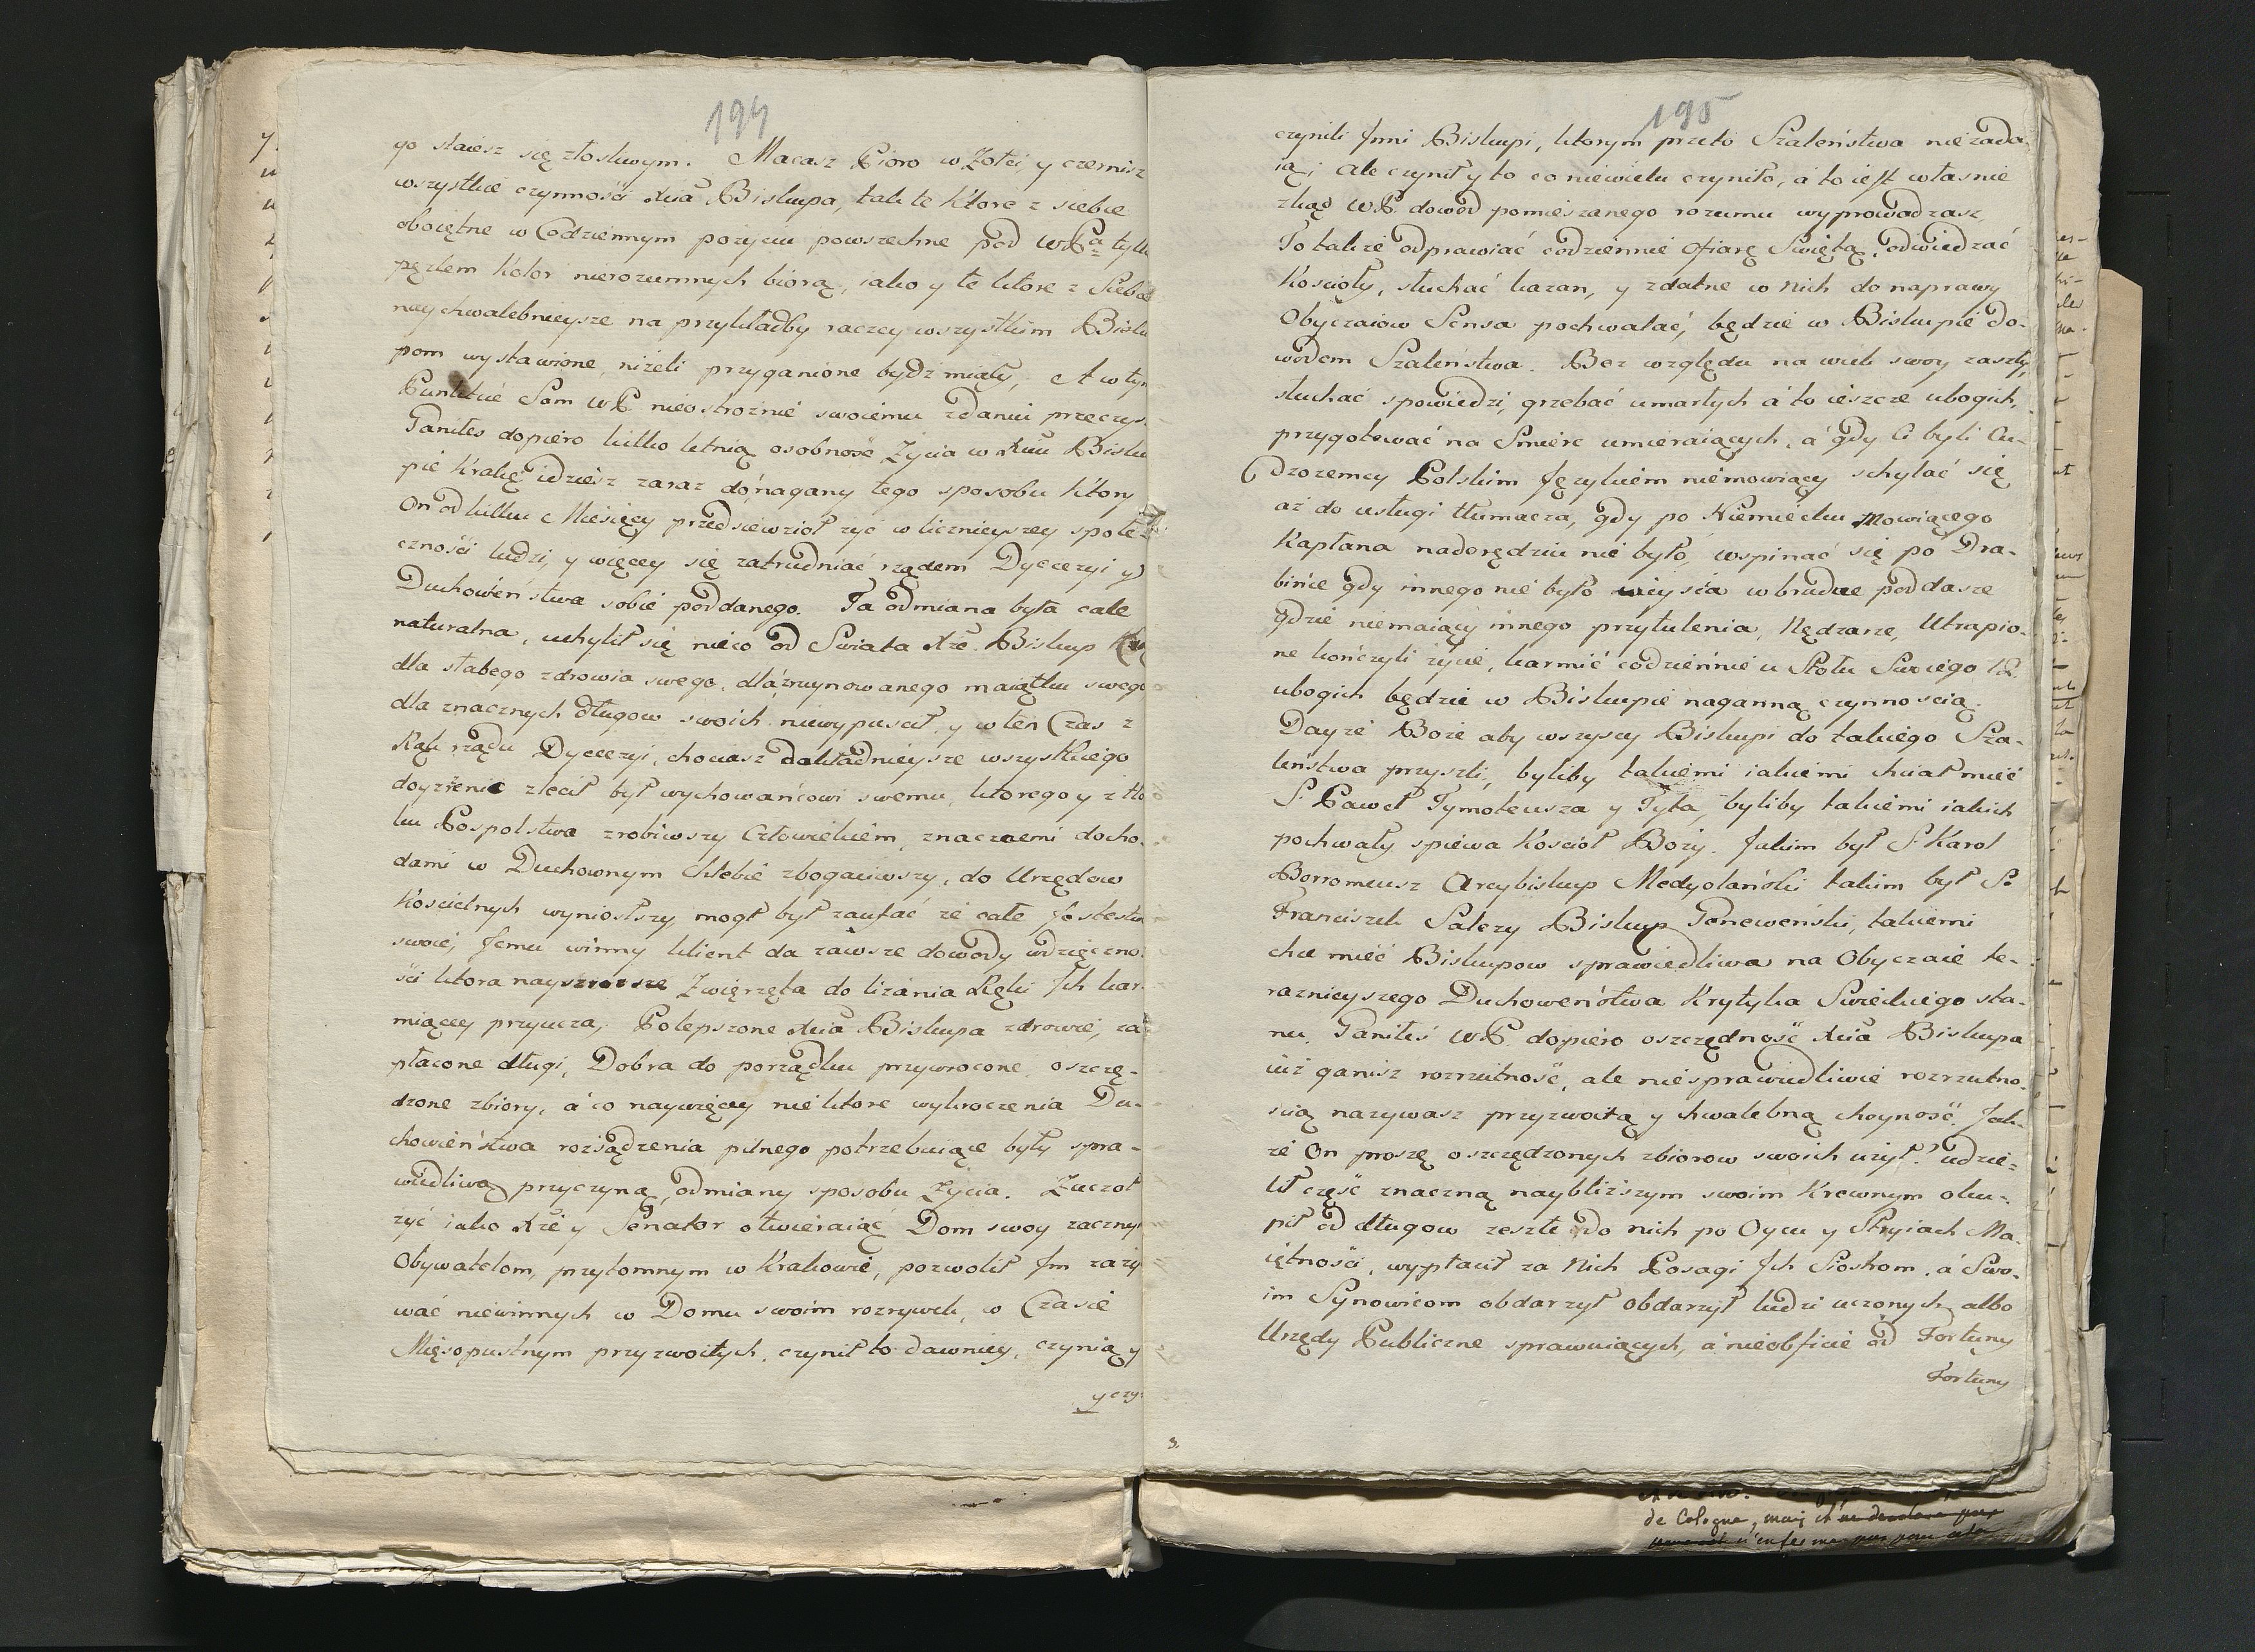 194
go staiesz się złosliwym. Macasz Pioro w Zołci, y czernisz
wszystkie czynności Xcia Biskupa, tak te ktore z siebie
oboiętne w Codziennym pożyciu powszechne pod WPa tylk
pęzlem kolor nierozumnych biorą, iako y te ktore z Siebie
naychwalebnieysze na przykładby raczey wszystkim Bisku
pom wystawione, niżeli przyganione bydź miały, A w tym
Punkcie Sam WP. nieostrożnie swoiemu zdaniu przeczys.
Ganiłes dopiero kilko letnią osobność Zycia w Xciu Bisku
pie Krakę: idziesz zaraz do nagany tego sposobu ktory
On od kilku Miesięcy przedsiewzioł zyć w licznieyszey społe-
czności ludzi, y więcey się zatrudniać rządem Dyecezyi y
Duchowieństwa sobie poddanego. Ta odmiana była cale
naturalna, uchylił się nieco od Swiata Xże Biskup
dla słabego zdrowia swego, dla zruynowanego maiątku swego
dla znacznych długow swoich niewypuscił y w ten Czas z
Rąk rządu Dyecezyi, chociasz dokładnieysze wszystkiego
doyżrenie zlecił był wychowańcowi swemu, ktorego y z tło
ku Pospolstwa zrobiwszy Człowiekiem, znacznemi docho-
dami w Duchownym Chlebie zbogaciwszy, do Urzędow
Koscielnych wyniosłszy, mogł był zaufać że całe Jestestwo
swoie, Jemu winny klient da zawsze dowody wdzięczno-
ści ktora naysroższe Zwięrzęta do lizania Ręki Ich kar-
miącey przyucza, Polepszone Xcia Biskupa zdrowie, za-
płacone długi, Dobra do porządku przywrocone, oszczę-
dzone zbiory, a co naywięcey niektore wykroczenia Du-
chowieństwa rozsądzenia pilnego potrzebuiące były spra-
wiedliwą przyczyną, odmiany sposobu Zycia. Zaczoł
zyć iako Xże y Senator otwieraiąc Dom swoy zacznym
Obywatelom, przytomnym w Krakowie, pozwolił Im zaży
wać niewinnych w Domu swoim rozrywek, w Czasie
Mięsopustnym przyzwoitych, czynił to dawniey, czynią y
y czy-
195
czynili Inni Biskupi, ktorym przeto Szaleństwa nie zada-
ią; Ale czynił y to co niewielu czyniło, a to iest własnie
zkąd WP. dowod pomieszanego rozumu wyprowadzasz,
To takie odprawiać codziennie Ofiarę Swiętą, odwiedzać
Koscioły, słuchać kazan, y zdatne w nich do naprawy
Obyczaiow Sensa pochwalać, będzie w Biskupie do-
wodem Szaleństwa. Bez względu na wiek swoy zaszły,
słuchać spowiedzi, grzebać umarłych a to ieszcze ubogich,
przygotować na Smierć umieraiących, a gdy Ci byli Cu-
dzozemcy Polskim Językiem niemowiący schylać się
aż do usługi tłumacza, gdy po Niemiecku Mowiącego
Kapłana nadorędziu nie było, wspinać się po Dra-
bince gdy innego nie było weyscia w brudne poddasze
gdzie niemaiący innego przytulenia, Nędzarze, Utrapio-
ne kończyli życie, karmić codziennie u Stołu Swoiego 12.
ubogich będzie w Biskupie naganną czynnoscią.
Dayże Boże aby wszyscy Biskupi do takiego Sza-
leństwa przyszli, byliby takiemi iakiemi chciał mieć
S. Paweł Tymoteusza y Tyta, byliby takiemi iakich
pochwały spiewa Kościoł Boży. Jakim był S. Karol
Borromeusz Arcybiskup Medyolański takim był S.
Franciszek Salezy Biskup Genewenski, takiemi
chce mieć Biskupow sprawiedliwa na Obyczaie te-
raznieyszego Duchoweństwa Krytyka Swieckiego sta-
nu. Ganiłeś WP. dopiero oszczędność Xcia Biskupa
iuż ganisz rozrzutność, ale niesprawiedliwie rozrzutno-
scią nazywasz przyzwoitą y chwalebną choyność. Jak-
że On proszę oszczędzonych zbiorow swoich użył? udzie-
lił część znaczną naybliższym swoim Krewnym oku-
pił od długow zeszłe do nich po Oycu y Stryiach Ma-
iętności, wypłacił za Nich Posagi Ich Siostrom, a Swo-
im Synowicom obdarzył obdarzył ludzi uczonych albo
Urzędy Publiczne sprawuiących, a nieobficie od Fortuny
Fortuny
3.
de Cologne, mais